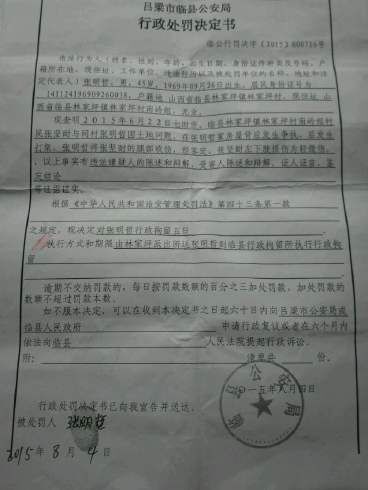 吕梁市临县公安局
行政处罚决定书
临公行罚决字〔2015〕000716号
违法行为人(姓名、性别、年龄、出生日期、身份证件种类及号码、户
籍所在地、现住址、工作单位、违法经历以及被处罚单位的名称、地址和法
定代表人)张明哲,男,45岁,1969年09月26日出生,居民身份证号为
户籍地 山西省临县林家坪镇林家坪村,现住址 山
西省临县林家坪镇林家坪村
现查明2015年6月22日七时许,临县林家坪镇林家坪村
民张坚时与同村张明哲因土地问题,在张明哲家房屋背后发生争执,后发生
打架,张明哲将张坚时的腿部咬伤,经鉴定,张坚时左下肢损伤为轻微伤。
以上事实有违法嫌疑人的陈述和申辩、受害人陈述和申辩、证人证言、鉴
定结论
等证据证实。
根据《中华人民共和国治安管理处罚法》第四十三条第一款
之规定,现决定对张明哲行政拘留五日
执行方式和期限由林家坪派出所送张明哲到临县行政拘留所执行行政拘
留
逾期不交纳罚款的,每日按罚款数额的百分之三加处罚款,加处罚款的
数额不超过罚款本数。
如不服本决定,可以在收到本决定书之日起六十日内向吕梁市公安局或
临县人民政府 申请行政复议或者在六个月内
依法向临县 人民法院提起行政诉讼。
附: 清单共 份。
二〇一五年八月四日
临县公安局
行政处罚决定书已向我宣告并送达。
被处罚人 张明哲
2015年 8月 4日